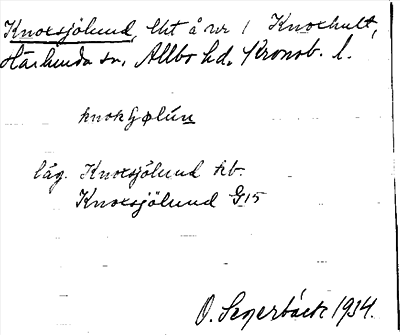 Knoxsjölund, lht å nr 1 Knoxhult,
Härlunda sn, Allbo hd, Kronob. l.
knoksjølún
låg. Knoxsjölund kb.
Knoxsjölund G15
O. Segerbäck 1934.